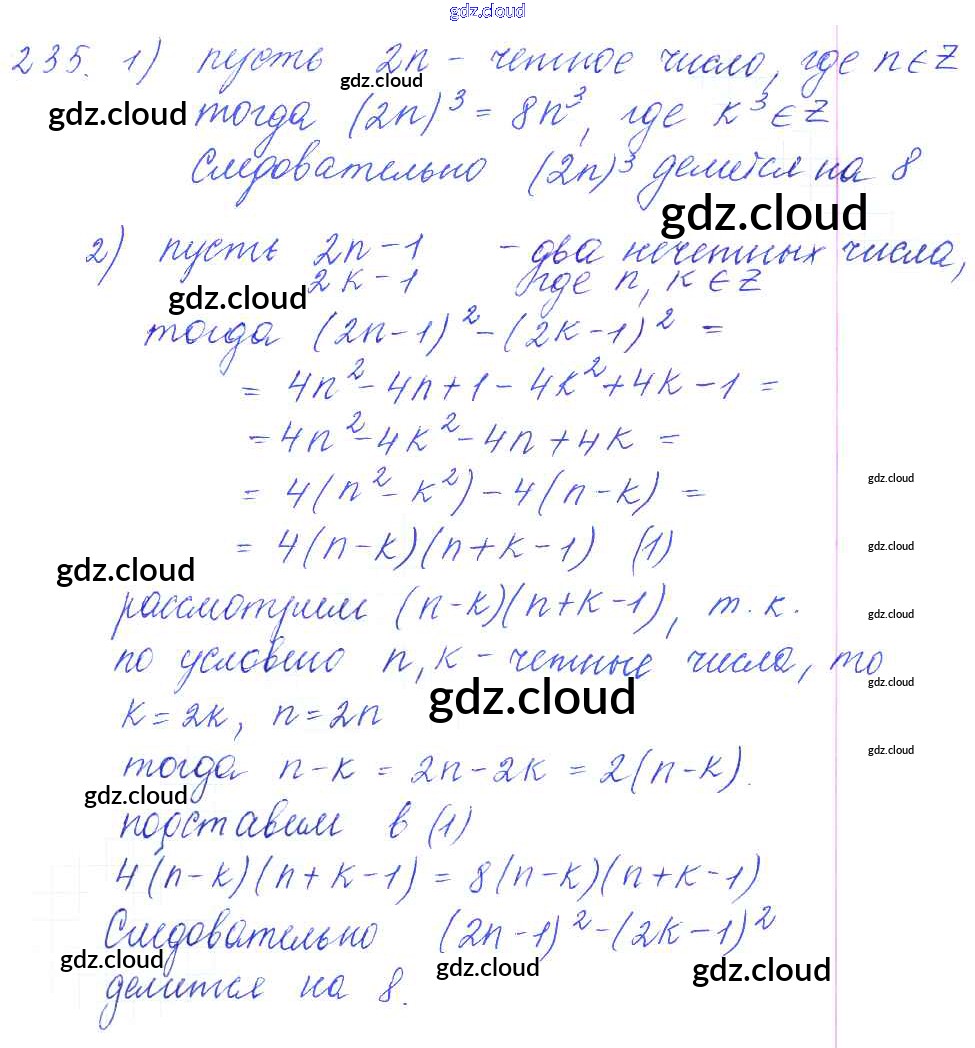 gdz.cloud
235. 1) пусть 2n - четное число, где n∈Z
gdz.cloud
gdz.cloud тогда (2n)³ = 8n³, где k³∈Z
Следовательно (2n)³ делится на 8
gdz.cloud
2) пусть 2n-1 - два нечетных числа,
2k-1 где n, k∈Z
gdz.cloud
тогда (2n-1)²-(2k-1)² =
= 4n²-4n+1-4k²+4k-1 =
=4n²-4k²-4n+4k =
gdz.cloud
= 4(n²-k²)-4(n-k) =
= 4(n-k)(n+k-1) (1)
gdz.cloud
gdz.cloud
рассмотрим (n-k)(n+k-1), т.к.
gdz.cloud
по условию n,k - четные числа, то
gdz.cloud
gdz.cloud
k=2k, n=2n
gdz.cloud
тогда n-k = 2n-2k = 2(n-k).
gdz.cloud
подставим в (1)
4(n-k)(n+k-1) = 8(n-k)(n+k-1)
Следовательно (2n-1)²-(2k-1)²
gdz.cloud
gdz.cloud
gdz.cloud
делится на 8.